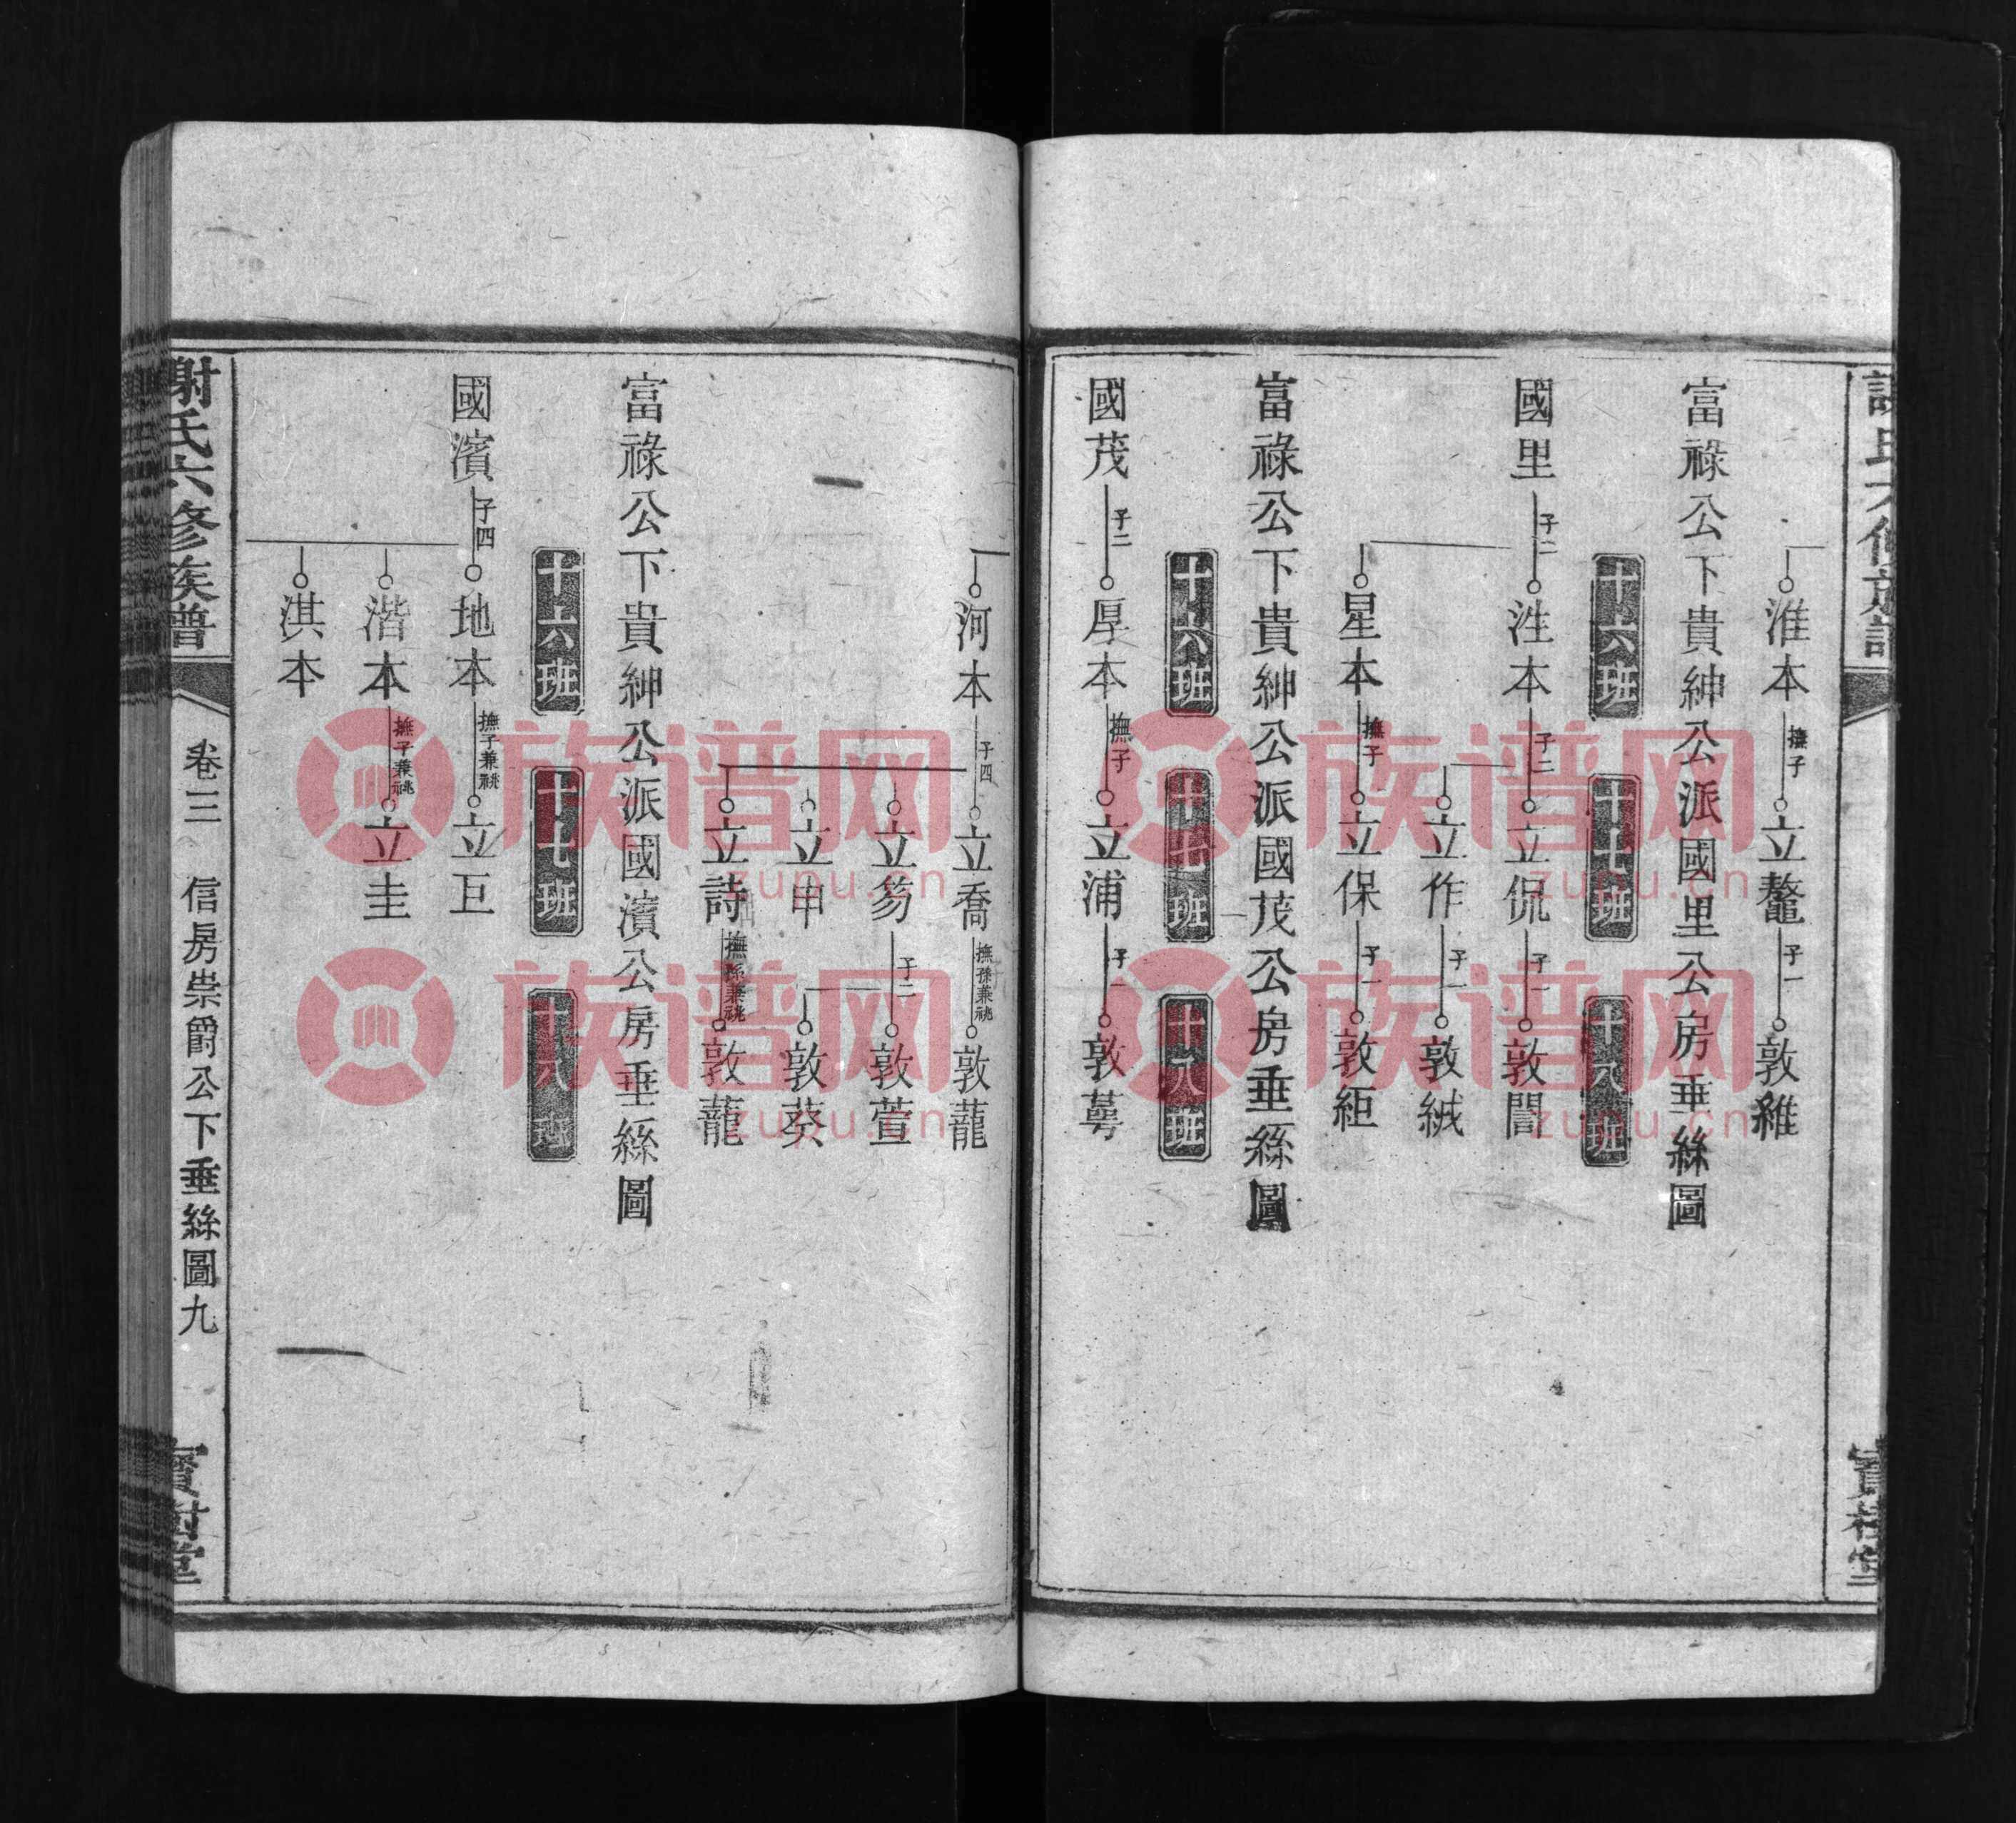 淮本 撫子 立鼇 子一 敦雒
富祿公下貴紳公派國里公房垂絲圖
十六班 十七班 十八班
國里 子二 泩本 子二 立侃 子一 敦誾
立作 子一 敦絨
星本 撫子 立保 子一 敦絙
富祿公下貴紳公派國茂公房垂絲圖
十六班 十七班 十八班
國茂 子二 厚本 撫子 立浦 子一 敦萼
寶樹堂
河本 子四 立喬 撫孫兼祧 敦蘢
立芴 子二 敦萱
立申 敦葵
立詩 撫孫兼祧 敦蘢
富祿公下貴紳公派國濱公房垂絲圖
十六班 十七班 十八班
國濱 子四 地本 撫子兼祧 立巨
湝本 撫子兼祧 立圭
淇本
謝氏六修族譜 卷三 信房崇爵公下垂絲圖 九 寶樹堂
族谱网 zupu.cn
族谱网 zupu.cn
族谱网 zupu.cn
族谱网 zupu.cn